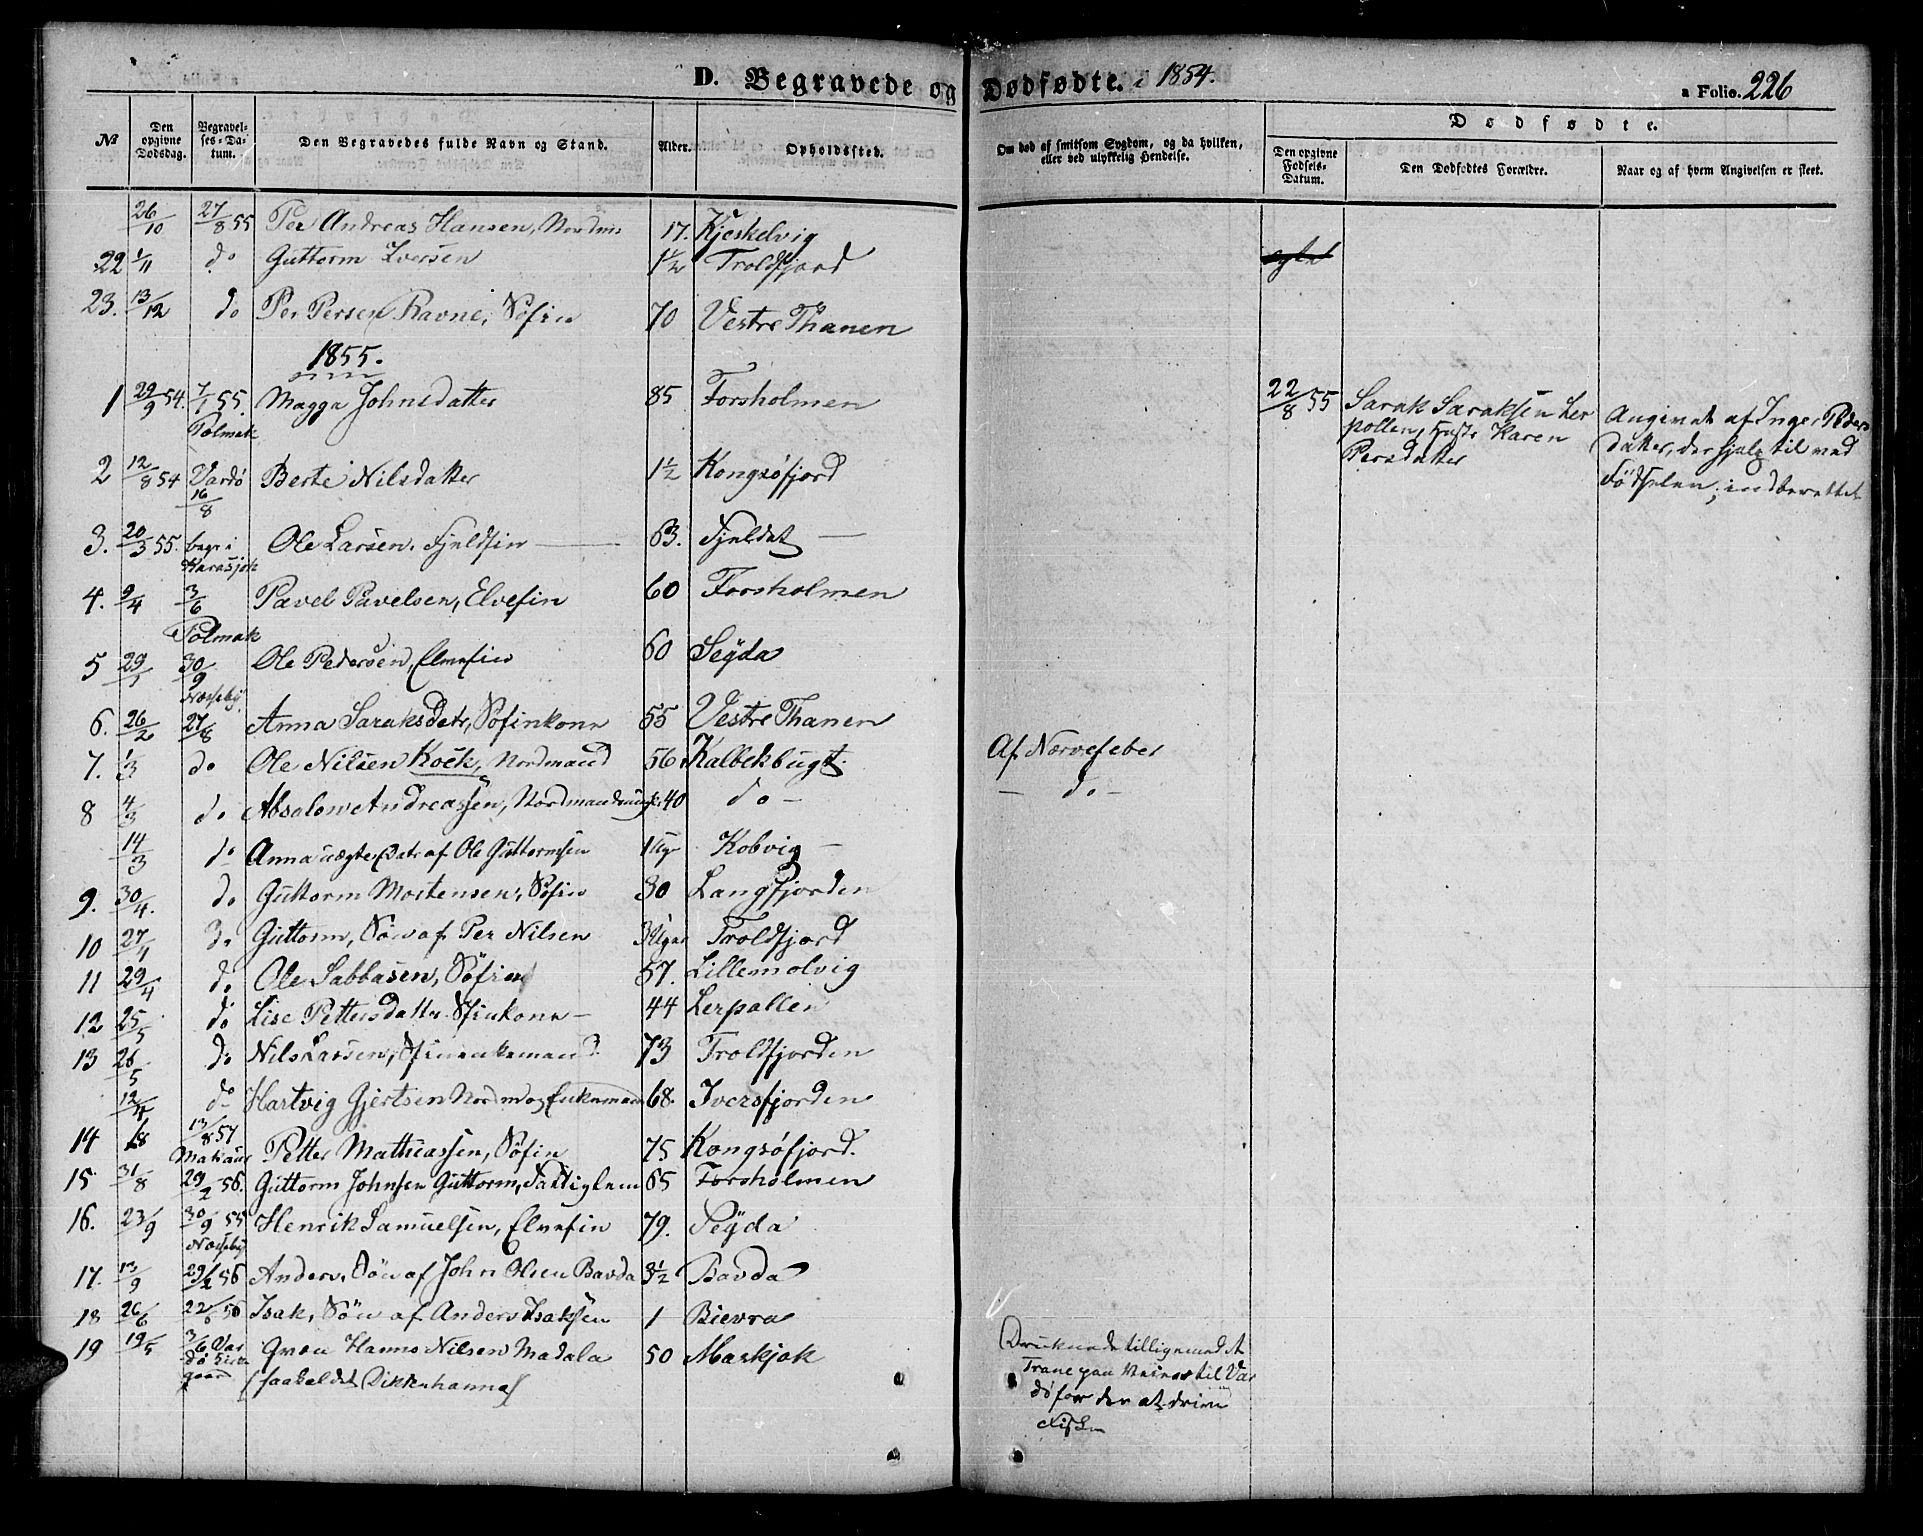 D. Begravede og Dødfødte. i 1854.
a Folio. 226
No
Den opgivne Dødsdag.
Begravelses-Datum.
Den Begravedes fulde Navn og Stand.
Alder.
Opholdssted.
Om død af smitsom Sygdom, og da hvilken, eller ved ulykkelig Hendelse.
Dødfødte.
Den opgivne Fødsels-Datum.
Den Dødfødtes Forældre.
Naar og af hvem Angivelsen er skeet.
26/10 27/8 55 Per Andreas Hansen, 17. Kjeskelvig
22 1/11 do Guttorm Iversen 1½ Troldfjord
23. 13/12 do Per Persen Ravne, Søfin 70 Vestre Thanen
1855.
1 29/9 54. 7/1 55. Polmak Magga Johnsdatter 85 Forsholmen
22/8 55 Sarak Saraksen Ler
pollen, Hustr Karen
Persdatter
Angivet af Inger Peders
datter, der hjalp til ved
Fødselen; indberettet
2 12/8 54 Vardø 16/8 Berte Nilsdatter 1½ Kongsøfjord
3. 20/3 55. begr i Karasjok Ole Larsen, Fjeldfin 63. Fjeldet
4. 9/4 3/6 Polmak Pavel Pavelsen, Elvefin 60 Forsholmen
5 29/1 30/9 Næsseby Ole Pedersen, Elvefin 60 Seyda
6. 26/2 27/8 Anna Saraksdatr, Søfinkone 55 Vestre Thanen
7. 1/3 do Ole Nilsen Koek, Nordmand 56 Kalbekbugt. Af Nervefeber
8 4/3 do Absalon Andreassen, 40 do - - do -
14/3 do Anna uægte Datr af Ole Guttormsen 1 Uge Kobvig
9. 30/4. do Guttorm Mortensen, Søfin 30 Langfjorden
10 27/4 do Guttorm, Søn af Per Nilsen 3 Uger Troldfjord
11 29/4 do Ole Sabbasen, Søfin 57. Lillemolvig
12 25/5 do Lise Pettersdatter Søfinkone 44 Lerpollen
13 28/5 do Nils Larsen, 73 Troldfjorden
12/4 do Hartvig Gjertsen Nordm og Enkemand 68. Iversfjorden
14 1/8 13/8 57 Makaur Petter Mathiassen, Søfin 75 Kongsøfjord.
15 31/8 29/2 56. Guttorm Johnsen Guttorm, Fattiglem 65 Forsholmen
16. 23/9 30/9 55 Næsseby Henrik Samuelsen, Elvefin 79. Seyda
17. 13/9 29/2 56 Anders, Søn af John Olsen Bavda 3½ Bavda
18 26/6 22/6 56 Isak, Søn af Anders Isaksen 1 Bievra
19 19/5 3/6 Vardø Kirkegaard Hanns Nilsen Madala 50 Maskjok
(saakaldet Dikkehanna)
Druknede tilligemed et
Trane paa Reise til Var
dø for der at drive
Fiskeri